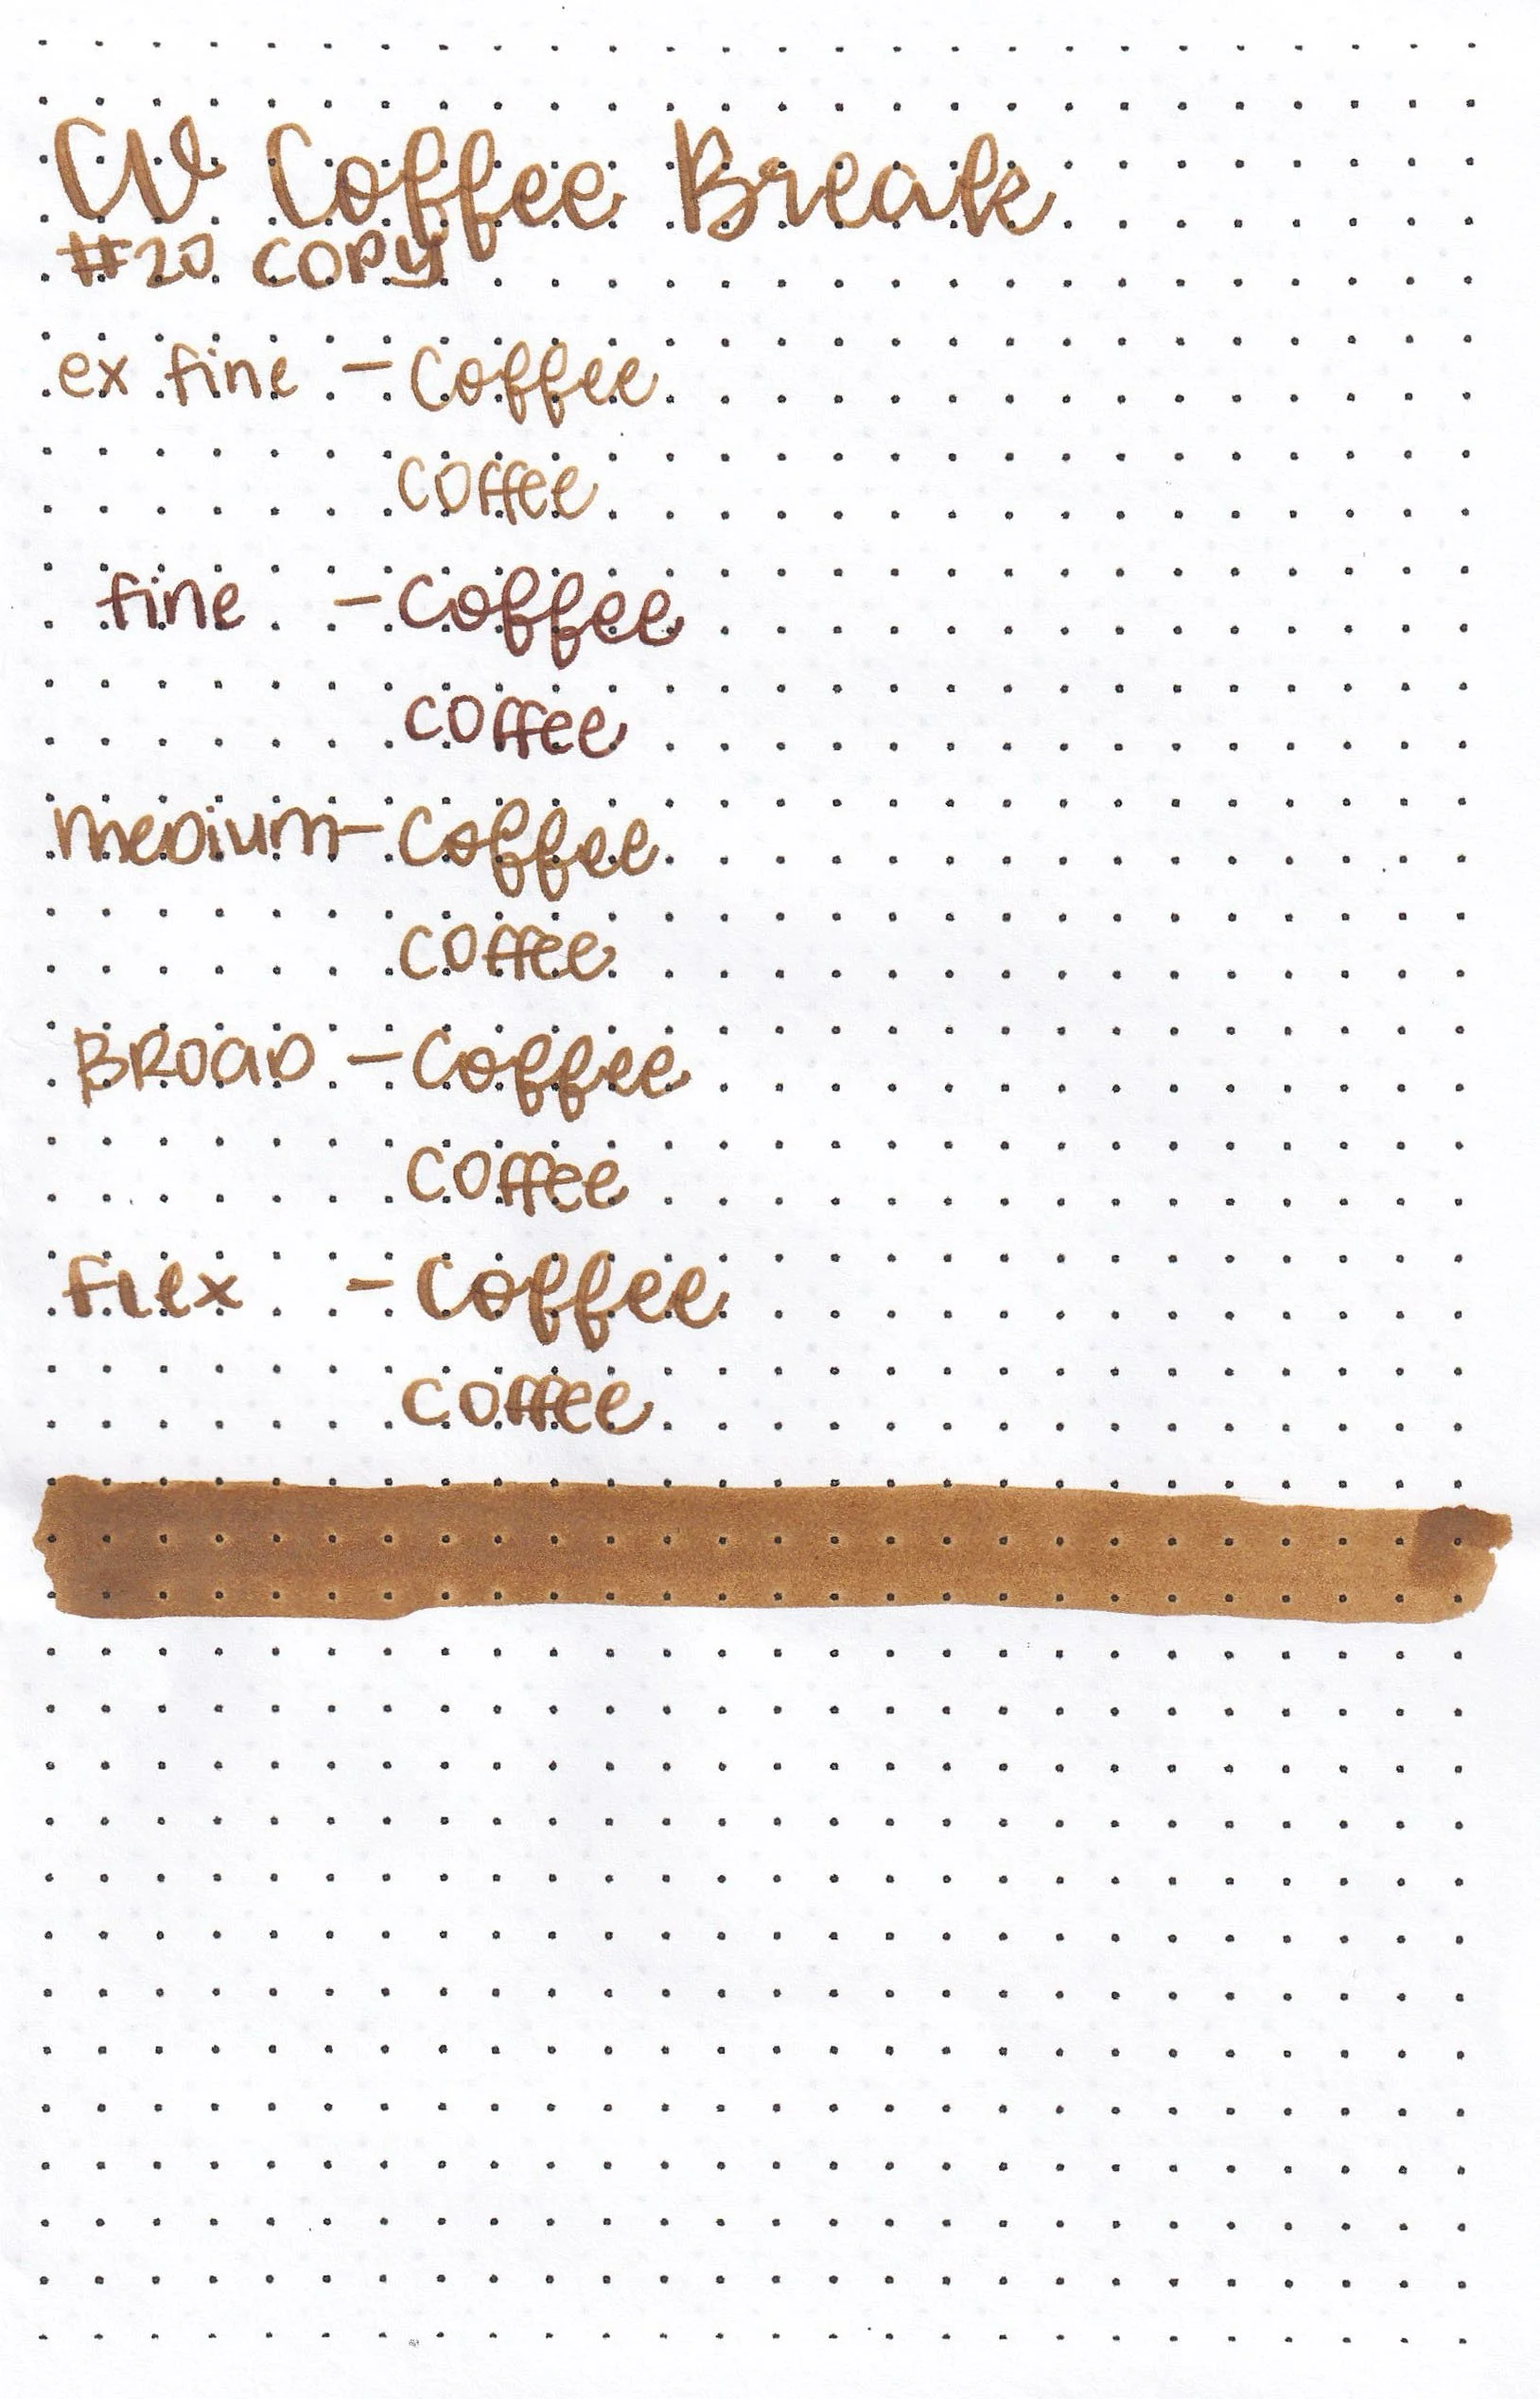 CV Coffee Break
#20 COPY
ex fine - Coffee
coffee
fine - Coffee
coffee
medium - Coffee
coffee
BROAD - Coffee
coffee
Flex - Coffee
coffee